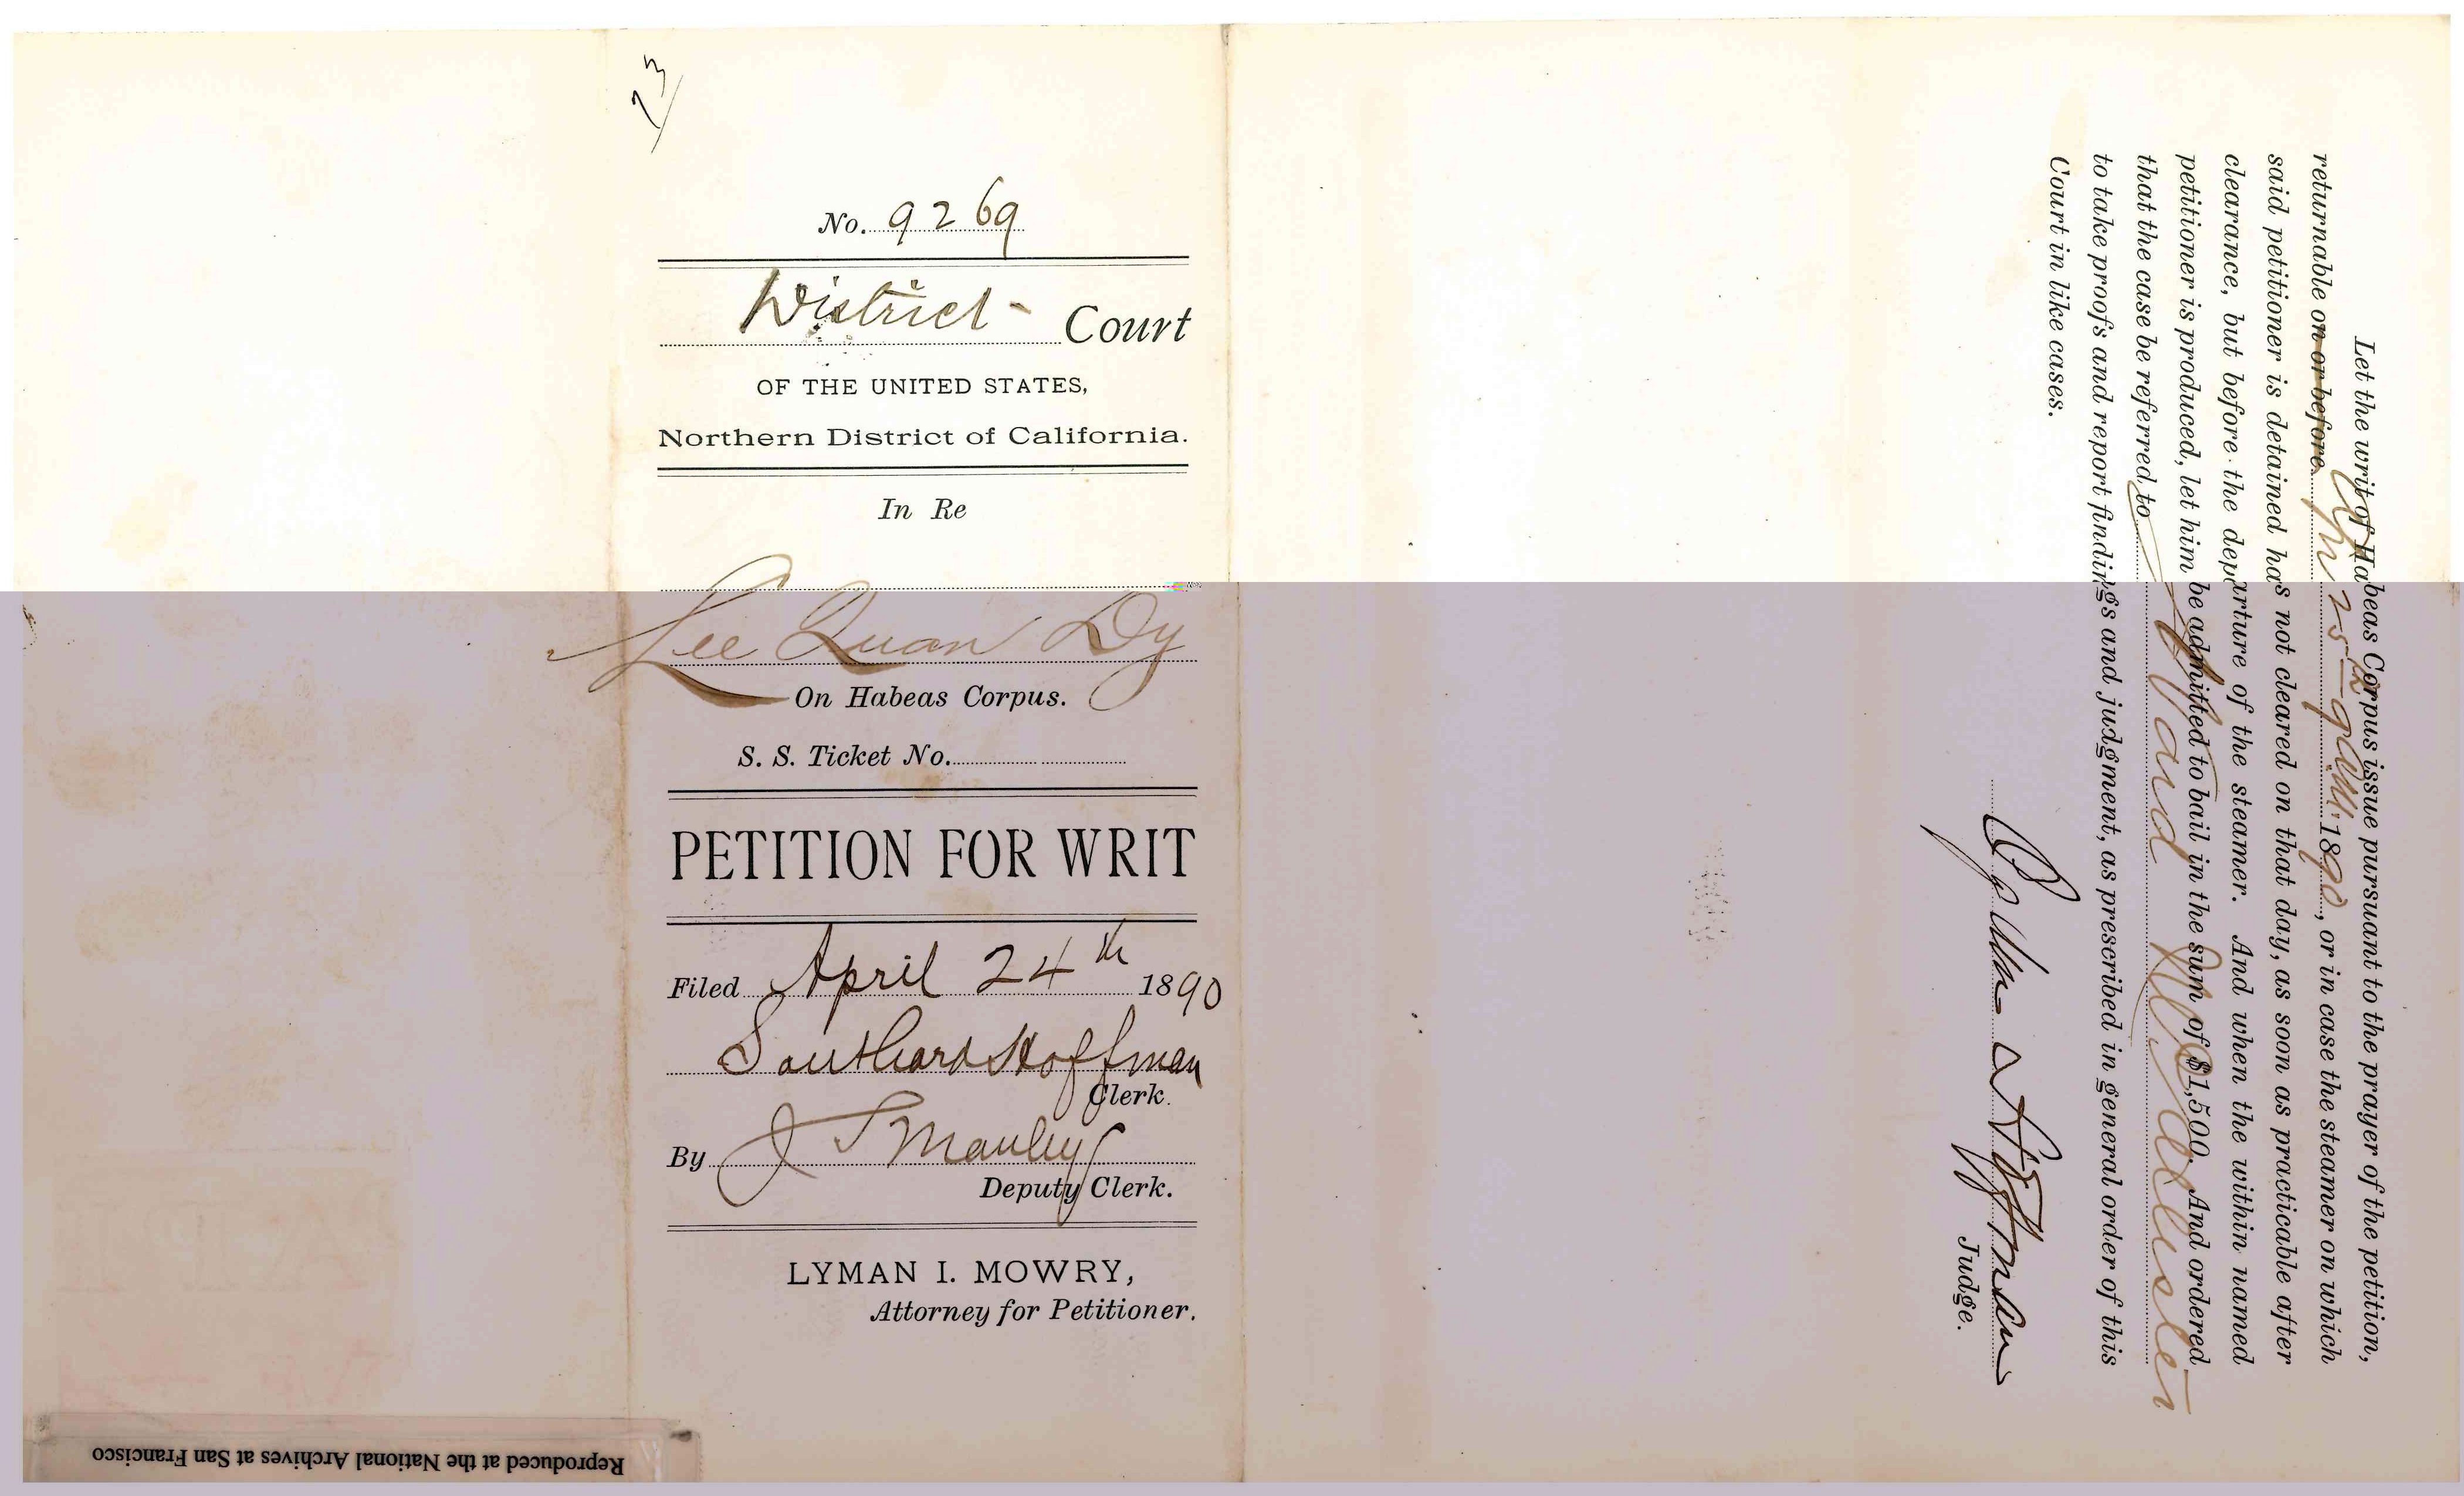 13
No. 9269
District Court
OF THE UNITED STATES,
Northern District of California.
In Re
Lee Quan Dy
On Habeas Corpus.
S. S. Ticket No.
PETITION FOR WRIT
Filed April 24th 1890
Southard Hoffman
Clerk.
By J S Manley
Deputy Clerk.
LYMAN I. MOWRY,
Attorney for Petitioner.
Reproduced at the National Archives at San Francisco
Let the writ of Habeas Corpus issue pursuant to the prayer of the petition,
returnable on or before 25 1890, or in case the steamer on which
said petitioner is detained has not cleared on that day, as soon as practicable after
clearance, but before the departure of the steamer. And when the within named
petitioner is produced, let him be admitted to bail in the sum of $1,500. And ordered
that the case be referred to
to take proofs and report findings and judgment, as prescribed in general order of this
Court in like cases.
Hoffman
Judge.